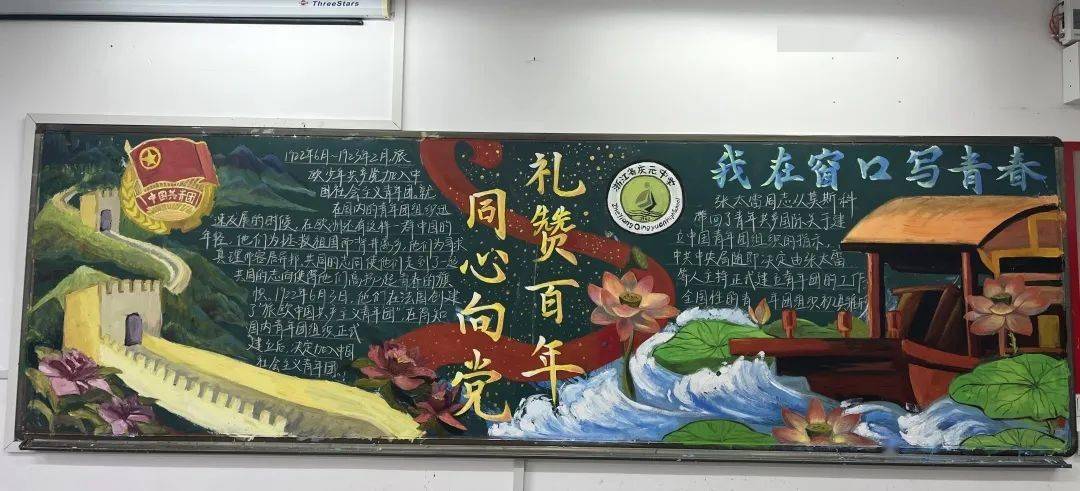 ThreeStars
中国共青团
1922年6月~1923年2月,旅
欧少年共产党加入中
国社会主义青年团.就
在国内的青年团组织迅
速发展的时候,在欧洲还有这样一群中国的
年轻,他们为拯救祖国而背井离乡,他们为寻求
真理
共同的志向使他们走到了一起
共同的志向使他们高办起青春的旗
帜.1922年6月3日,他们在法国创建
了"旅欧中国少年共产主义青年团"在得知
国内青年团组织正式
建立后.决定加入中国
社会主义青年团.
礼赞百年
同心向党
浙江省庆元中学
Zhejiang Qingyuan
我在窗口写青春
张太雷同志从莫斯科
带回了青年共产国际关于建
立中国青年团组织的指示.
中共中央局随即决定由张太雷
等人主持正式建立青年团的工作
全国性的青年团组织初具雏形